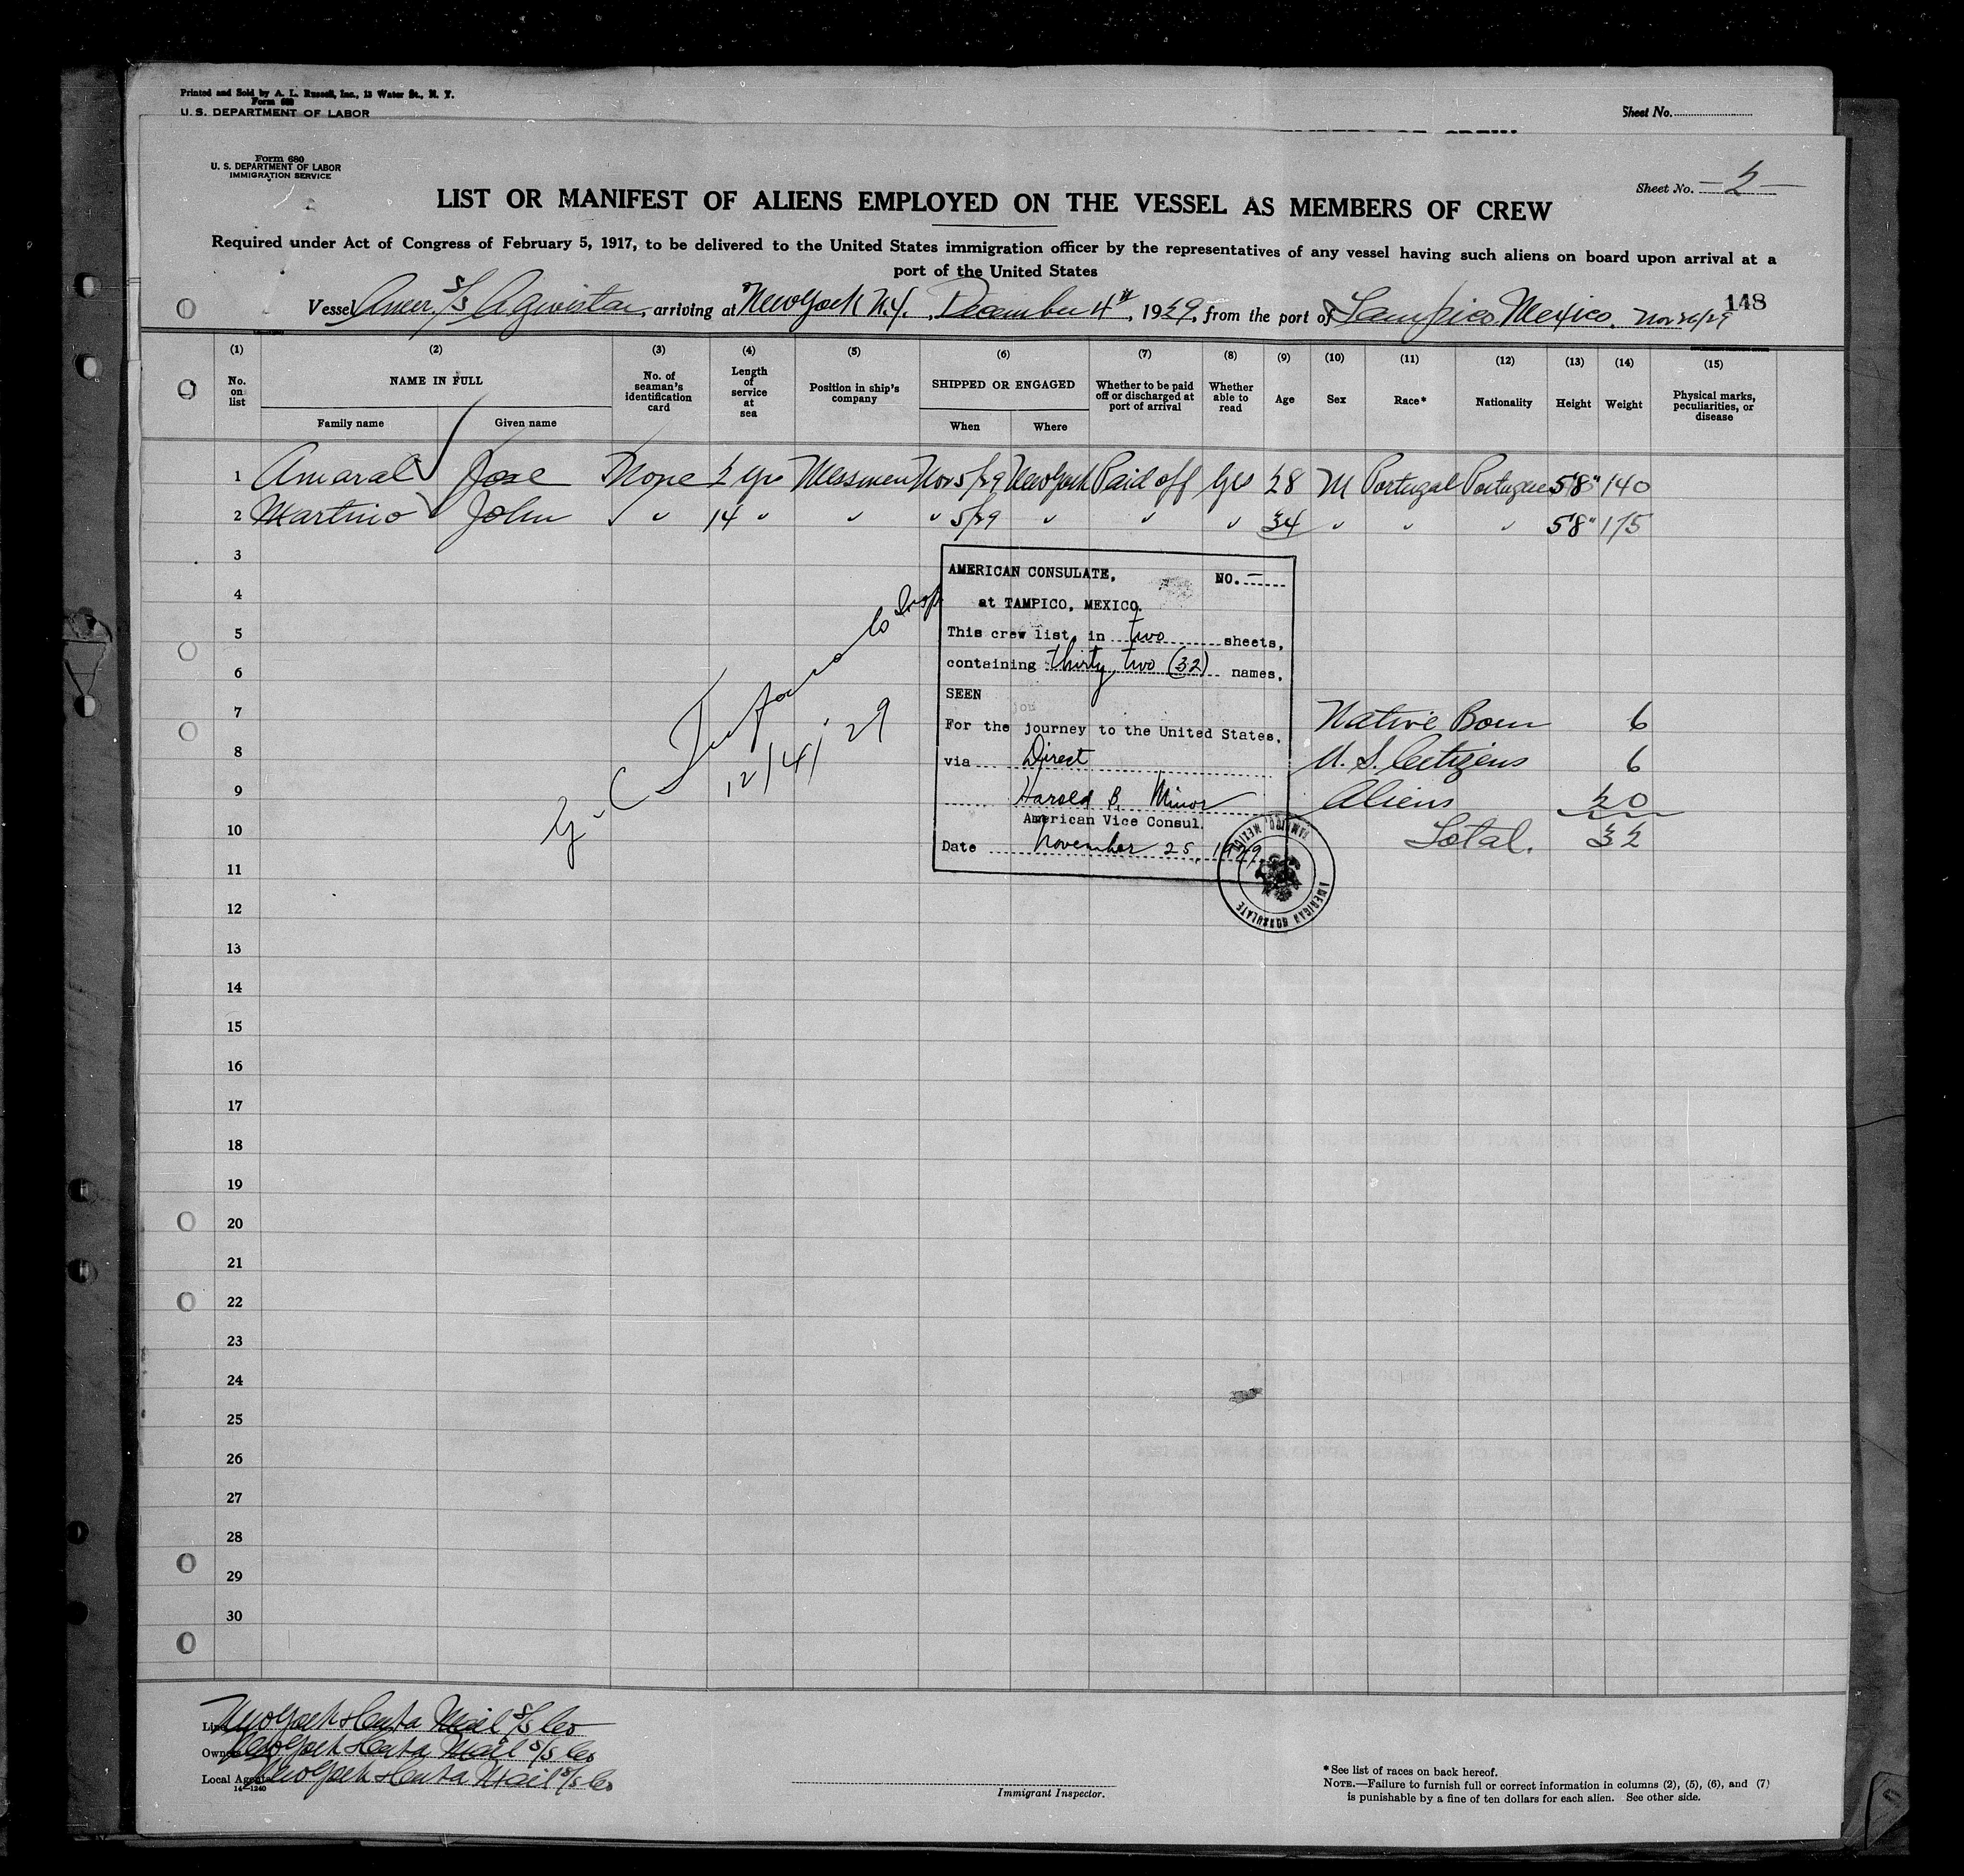 Printed and Sold by A. L. Russell, Inc., 13 Water St., N. Y.
Form 680
U. S. DEPARTMENT OF LABOR
Sheet No.
Form 680
U. S. DEPARTMENT OF LABOR
IMMIGRATION SERVICE
Sheet No. - 2 -
LIST OR MANIFEST OF ALIENS EMPLOYED ON THE VESSEL AS MEMBERS OF CREW
Required under Act of Congress of February 5, 1917, to be delivered to the United States immigration officer by the representatives of any vessel having such aliens on board upon arrival at a
port of the United States
148
Vessel Amer. S/S Agwistar, arriving at New York N.Y., December 4th, 1929, from the port of Tampico Mexico. Nov 26/29
(1) (2) (3) (4) (5) (6) (7) (8) (9) (10) (11) (12) (13) (14) (15)
No. on list NAME IN FULL No. of seaman's identification card Length of service at sea Position in ship's company SHIPPED OR ENGAGED Whether to be paid off or discharged at port of arrival Whether able to read Age Sex Race* Nationality Height Weight Physical marks, peculiarities, or disease
Family name Given name When Where
1 Amaral Jose None 2 yrs Messmen Nov 5/29 New York Paid off Yes 28 M Portugal Portuguese 5'8" 140
2 Martino John " 14 " " " 5/29 " " " 34 " " " 5'8" 175
3
4
5
6
7
8
9
10
11
12
13
14
15
16
17
18
19
20
21
22
23
24
25
26
27
28
29
30
12/4/29
AMERICAN CONSULATE, NO. -
at TAMPICO, MEXICO.
This crew list, in two sheets,
containing thirty two (32) names,
SEEN
For the journey to the United States,
via Direct
Harold B. Minor
American Vice Consul.
Date November 25, 1929
AMERICAN CONSULATE
TAMPICO, MEXICO
Native Born 6
U. S. Citizens 6
Aliens 20
Total. 32
Line New York & Cuba Mail S/S Co
Owners New York & Cuba Mail S/S Co
Local Agents New York & Cuba Mail S/S Co
14-1240
Immigrant Inspector.
*See list of races on back hereof.
NOTE.—Failure to furnish full or correct information in columns (2), (5), (6), and (7)
is punishable by a fine of ten dollars for each alien. See other side.